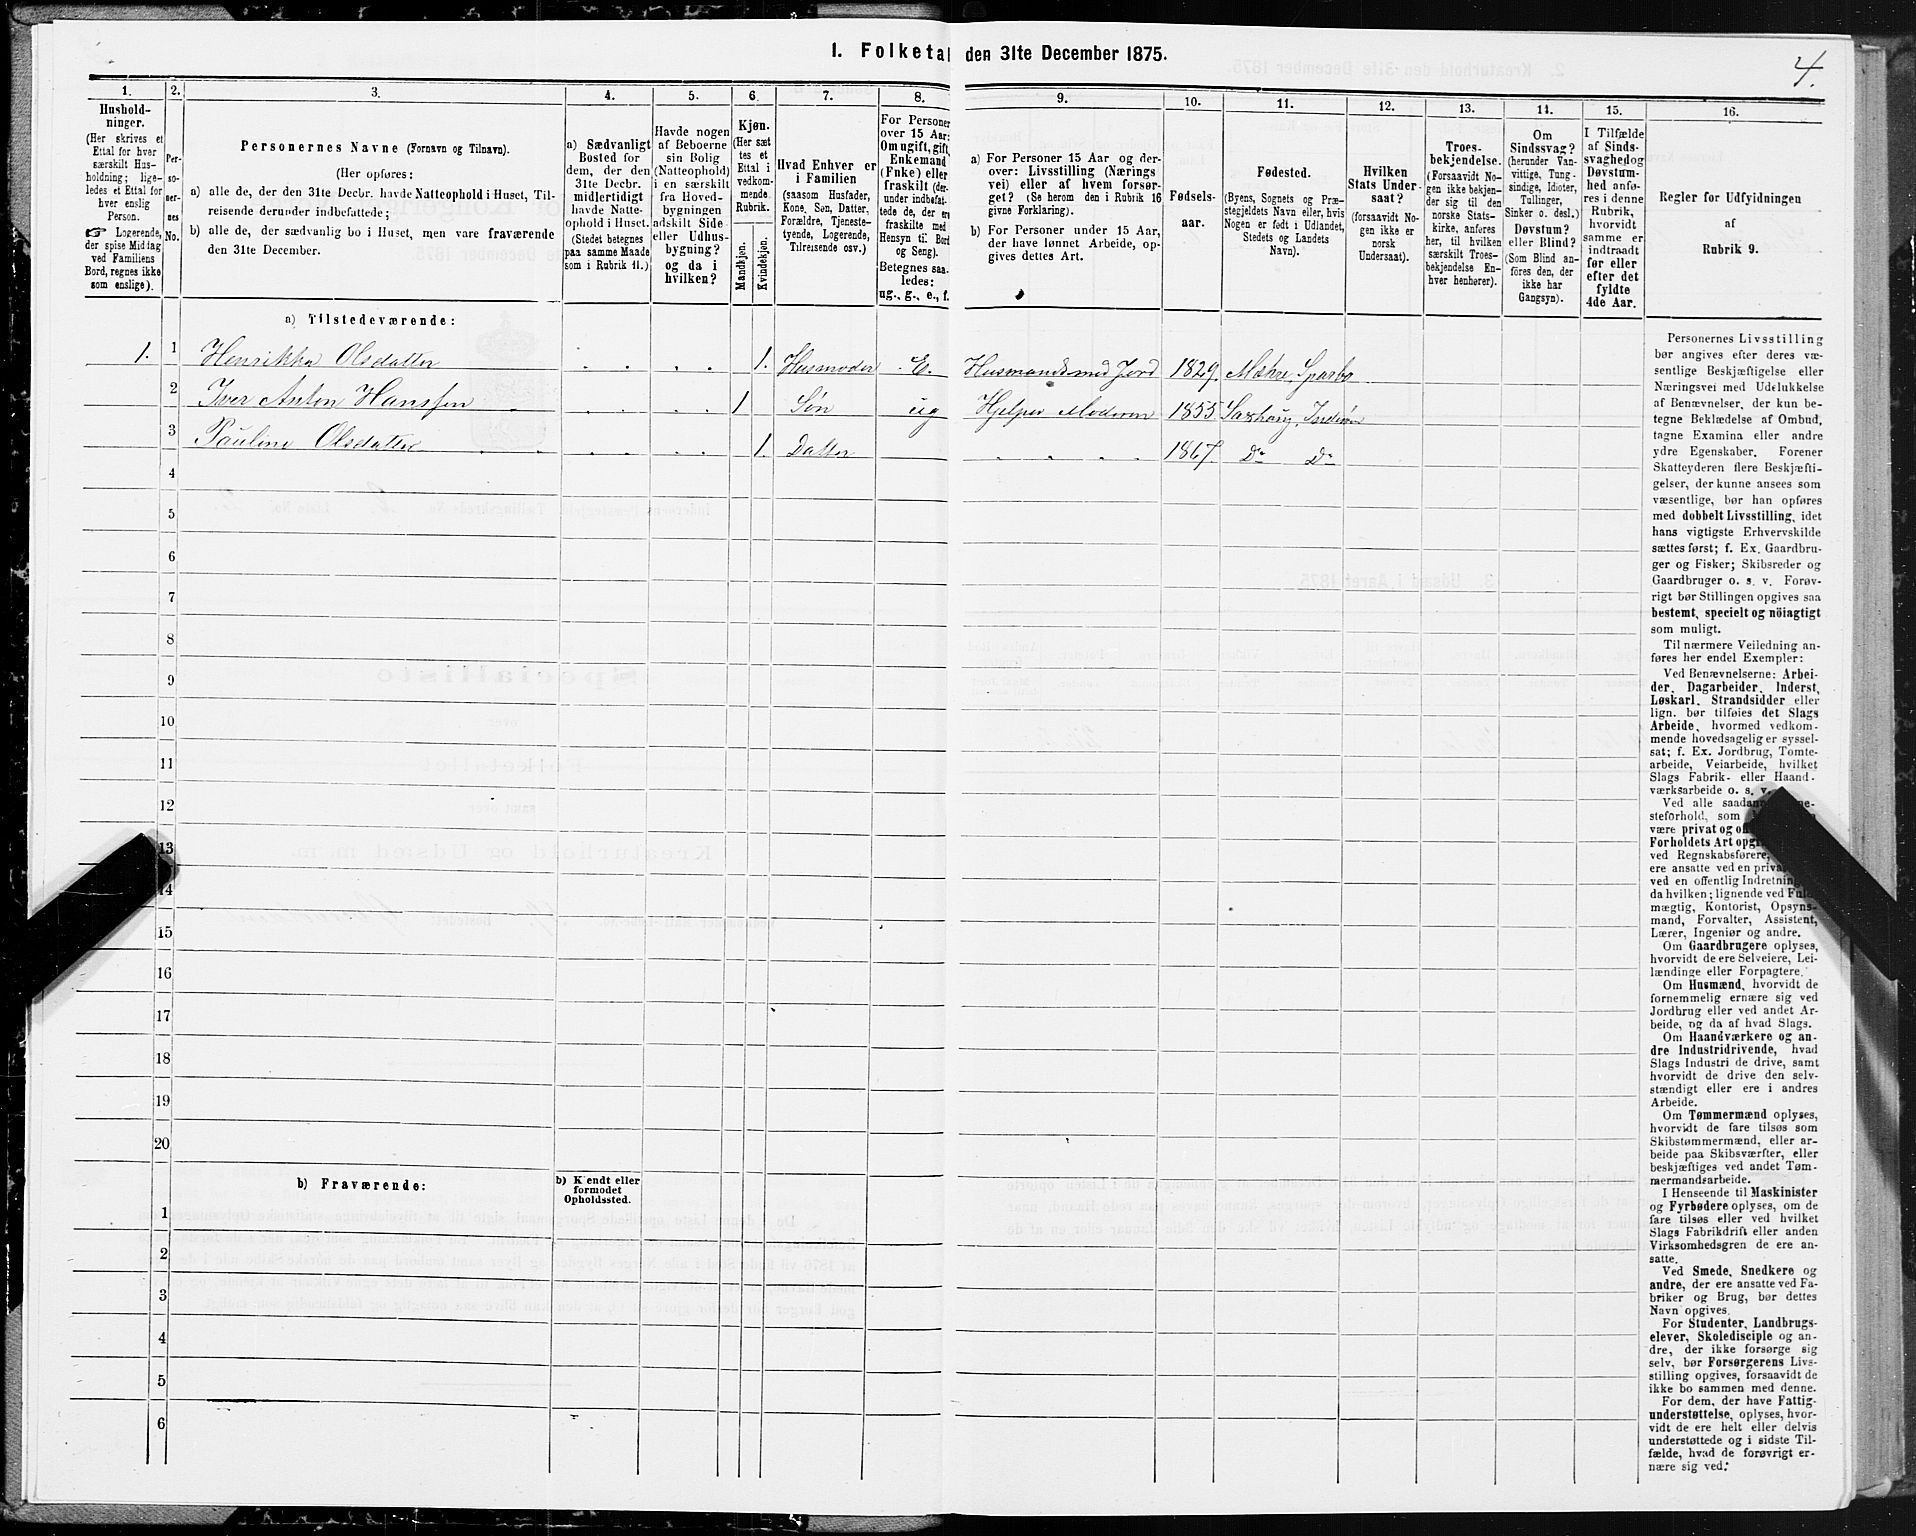 1. Folketal den 31te December 1875.
4.
1.
2.
3.
4.
5.
6.
7.
8.
9.
10.
11.
12.
13.
14.
15.
16.
Hushold-
ninger.
(Her skrives et
Ettal for hver
særskilt Hus-
holdning; lige-
ledes et Ettal for
hver enslig
Person.
☞ Logerende,
der spise Middag
ved Familiens
Bord, regnes ikke
som enslige).
Per-
so-
ner-
nes
No.
Personernes Navne (Fornavn og Tilnavn).
(Her opføres:
a) alle de, der den 31te Decbr. havde Natteophold i Huset, Til-
reisende derunder indbefattede;
b) alle de, der sædvanlig bo i Huset, men vare fraværende
den 31te December.
a) Sædvanligt
Bosted for
dem, der den
31te Decbr.
midlertidigt
havde Natte-
ophold i Huset.
(Stedet betegnes
paa samme Maade
som i Rubrik 11.)
Havde nogen
af Beboerne
sin Bolig
(Natteophold)
i en særskilt
fra Hoved-
bygningen
adskilt Side-
eller Udhus-
bygning?
og da i
hvilken?
Kjøn.
(Her sæt
tes et
Ettal i
vedkom-
mende
Rubrik.
Mandkjøn.
Kvindekjøn.
Hvad Enhver er
i Familien
(saasom Husfader,
Kone, Søn, Datter,
Forældre, Tjeneste-
tyende, Logerende,
Tilreisende osv.)
For Personer
over 15 Aar:
Om ugift, gift,
Enkemand
(Enke) eller
fraskilt (der-
under indbefat-
tede de, der ere
fraskilte med
Hensyn til Bord
og Seng).
Betegnes saa-
ledes:
ug., g., e., f.
a) For Personer 15 Aar og der-
over: Livsstilling (Nærings
vei) eller af hvem forsør-
get? (Se herom den i Rubrik 16
givne Forklaring).
b) For Personer under 15 Aar,
der have lønnet Arbeide, op-
gives dettes Art.
Fødsels-
aar.
Fødested.
(Byens, Sognets og Præ-
stegjeldets Navn eller, hvis
Nogen er født i Udlandet,
Stedets og Landets
Navn).
Hvilken
Stats Under-
saat?
(forsaavidt No-
gen ikke er
norsk
Undersaat).
Troes-
bekjendelse.
(Forsaavidt No-
gen ikke bekjen-
der sig til den
norske Stats-
kirke, anføres
her, til hvilken
særskilt Troes-
bekjendelse En-
hver henhører).
Om
Sindssvag?
(herunder Van-
vittige, Tung-
sindige, Idioter,
Tullinger,
Sinker o. desl.)
Døvstum?
eller Blind?
(Som Blind an-
føres den, der
ikke har
Gangsyn).
I Tilfælde
af Sinds-
svaghed og
Døvstum-
hed anfø-
res i denne
Rubrik,
hvorvidt
samme er
indtraadt
før eller
efter det
fyldte
4de Aar.
Regler for Udfyldningen
af
Rubrik 9.
a) Tilstedeværende:
1. 1 Henrikka Olsdatter 1. Husmoder E. Husmands med Jord 1829. Mæhre, Sparbo
2 Iver Anton Hanssen 1 Søn ug Hjelper Moderen 1855. Saxhaug, Inderøen
3 Pauline Olsdatter 1. Datter 1867. Do Do
4
5
6
7
8
9
10
11
12
13
14
15
16
17
18
19
20
b) Fraværende:
b) Kjendt eller
formodet
Opholdssted.
1
2
3
4
5
6
Personernes Livsstilling
bør angives efter deres væ-
sentlige Beskjæftigelse eller
Næringsvei med Udelukkelse
af Benævnelser, der kun be-
tegne Beklædelse af Ombud,
tagne Examina eller andre
ydre Egenskaber. Forener
Skatteyderen flere Beskjæfti-
gelser, der kunne ansees som
væsentlige, bør han opføres
med dobbelt Livsstilling, idet
hans vigtigste Erhvervskilde
sættes først; f. Ex. Gaardbru-
ger og Fisker; Skibsreder og
Gaardbruger o. s. v. Forøv-
rigt bør Stillingen opgives saa
bestemt, specielt og nöiagtigt
som muligt.
Til nærmere Veiledning an-
føres her endel Exempler:
Ved Benævnelserne: Arbei-
der, Dagarbeider, Inderst,
Løskarl, Strandsidder eller
lign. bør tilføies det Slags
Arbeide, hvormed vedkom-
mende hovedsagelig er syssel-
sat; f. Ex. Jordbrug, Tomte-
arbeide, Veiarbeide, hvilket
Slags Fabrik- eller Haand-
værksarbeide o. s. v.
Ved alle saadan ne-
steforhold, som
være privat og of
Forholdets Art opgi
ved Regnskabsførere,
ere ansatte ved en priva
ved en offentlig Indretning
da hvilken; lignende ved Ful-
mægtig, Kontorist, Opsyns-
mand, Forvalter, Assistent,
Lærer, Ingeniør og andre.
Om Gaardbrugere oplyses,
hvorvidt de ere Selveiere, Lei-
lændinge eller Forpagtere.
Om Husmænd, hvorvidt de
fornemmelig ernære sig ved
Jordbrug eller ved andet Ar-
beide, og da af hvad Slags.
Om Haandværkere og an-
dre Industridrivende, hvad
Slags Industri de drive, samt
hvorvidt de drive den selv-
stændigt eller ere i andres
Arbeide.
Om Tømmermænd oplyses,
hvorvidt de fare tilsøs som
Skibstømmermænd, eller ar-
beide paa Skibsværfter, eller
beskjæftiges ved andet Tøm-
mermandsarbeide.
I Henseende til Maskinister
og Fyrbødere oplyses, om de
fare tilsøs eller ved hvilket
Slags Fabrikdrift eller anden
Virksomhedsgren de ere an-
satte.
Ved Smede, Snedkere og
andre, der ere ansatte ved Fa-
briker og Brug, bør dettes
Navn opgives.
For Studenter, Landbrugs-
elever, Skoledisciple og an-
dre, der ikke forsørge sig
selv, bør Forsørgerens Livs-
stilling opgives, forsaavidt de
ikke bo sammen med denne.
For dem, der have Fattig-
understøttelse, oplyses, hvor-
vidt de ere helt eller delvis
understøttede og i sidste Til-
fælde, hvad de forøvrigt er-
nære sig ved.